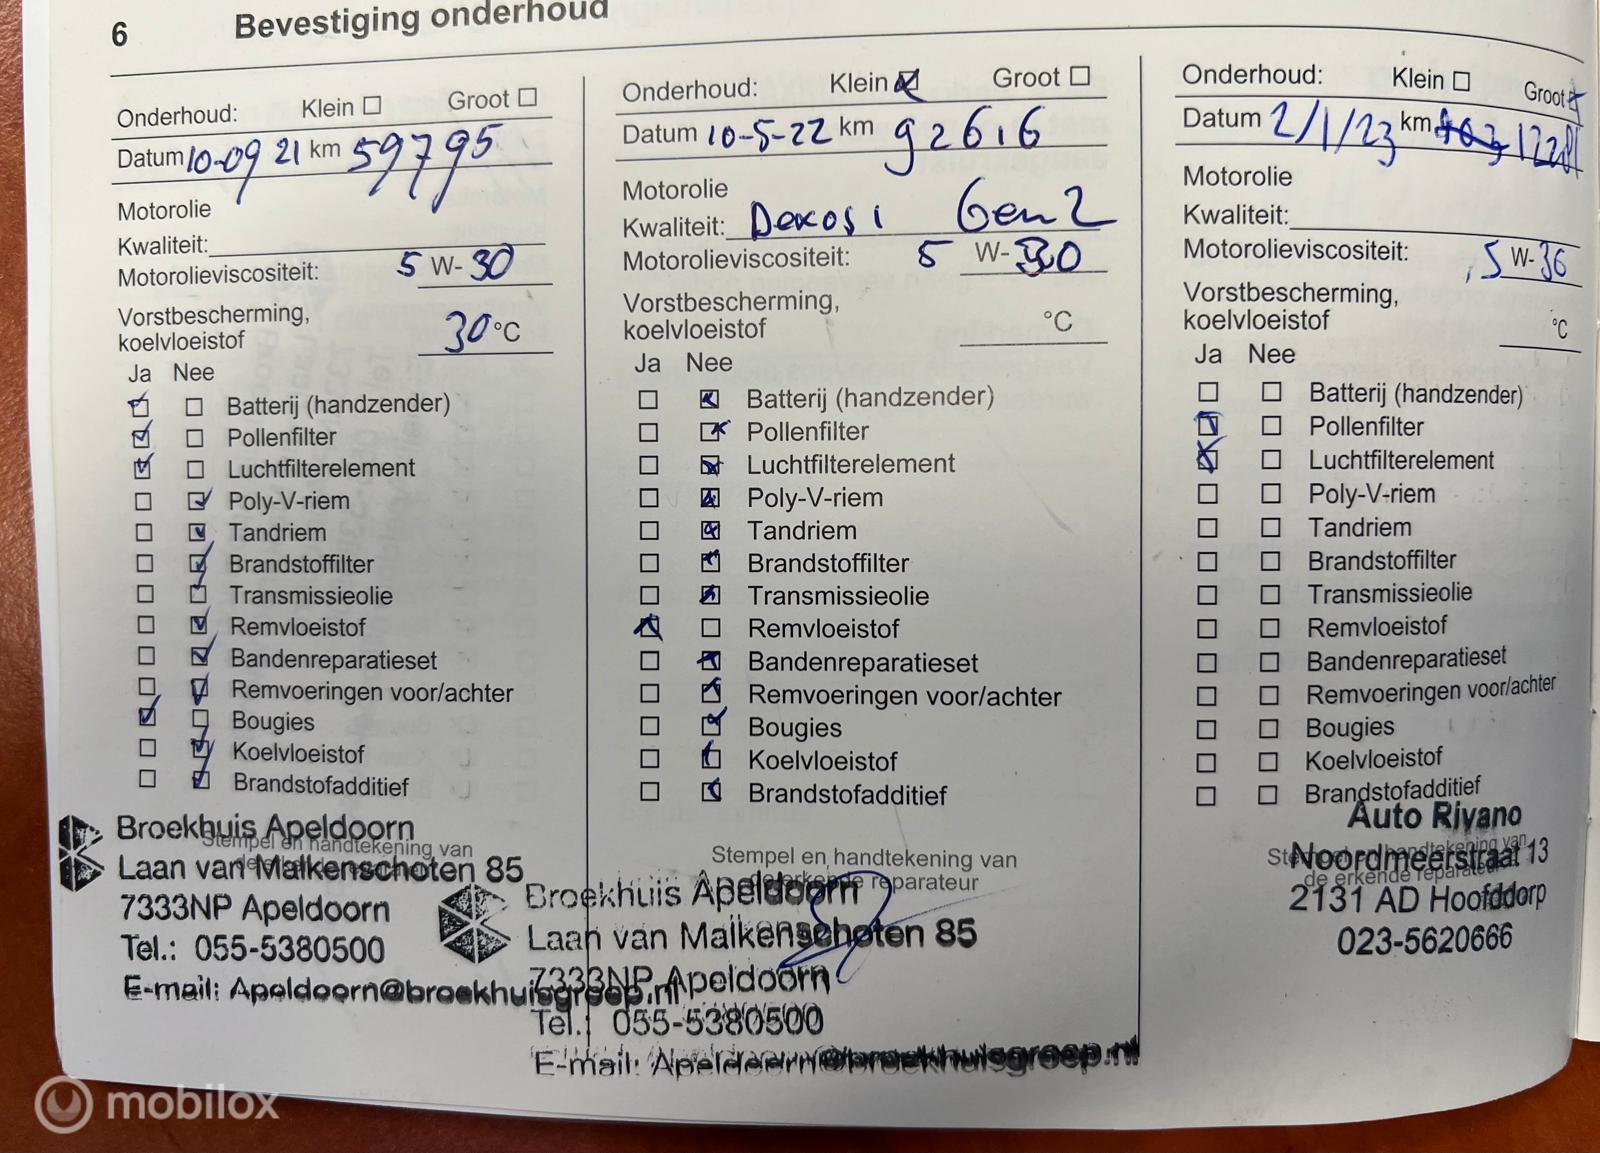 6 Bevestiging onderhoud
Onderhoud: Klein Groot
Datum 10-09 21 km 59795
Motorolie
Kwaliteit:
Motorolieviscositeit: 5 W-30
Vorstbescherming,
koelvloeistof 30 °C
Ja Nee
Batterij (handzender)
Pollenfilter
Luchtfilterelement
Poly-V-riem
Tandriem
Brandstoffilter
Transmissieolie
Remvloeistof
Bandenreparatieset
Remvoeringen voor/achter
Bougies
Koelvloeistof
Brandstofadditief
Stempel en handtekening van
Broekhuis Apeldoorn
Laan van Malkenschoten 85
7333NP Apeldoorn
Tel.: 055-5380500
E-mail: Apeldoorn@broekhuisgroep.nl
Onderhoud: Klein Groot
Datum 10-5-22 km 92616
Motorolie
Kwaliteit: Dexos 1 Gen 2
Motorolieviscositeit: 5 W-30
Vorstbescherming,
koelvloeistof °C
Ja Nee
Batterij (handzender)
Pollenfilter
Luchtfilterelement
Poly-V-riem
Tandriem
Brandstoffilter
Transmissieolie
Remvloeistof
Bandenreparatieset
Remvoeringen voor/achter
Bougies
Koelvloeistof
Brandstofadditief
Stempel en handtekening van
de erkende reparateur
Broekhuis Apeldoorn
Laan van Malkenschoten 85
7333NP Apeldoorn
Tel.: 055-5380500
E-mail: Apeldoorn@broekhuisgroep.nl
Onderhoud: Klein Groot
Datum 2/1/23 km
Motorolie
Kwaliteit:
Motorolieviscositeit: 5 W-30
Vorstbescherming,
koelvloeistof °C
Ja Nee
Batterij (handzender)
Pollenfilter
Luchtfilterelement
Poly-V-riem
Tandriem
Brandstoffilter
Transmissieolie
Remvloeistof
Bandenreparatieset
Remvoeringen voor/achter
Bougies
Koelvloeistof
Brandstofadditief
Stempel en handtekening van
de erkende reparateur
Auto Rivano
Noordmeerstraat 13
2131 AD Hoofddorp
023-5620666
mobilox